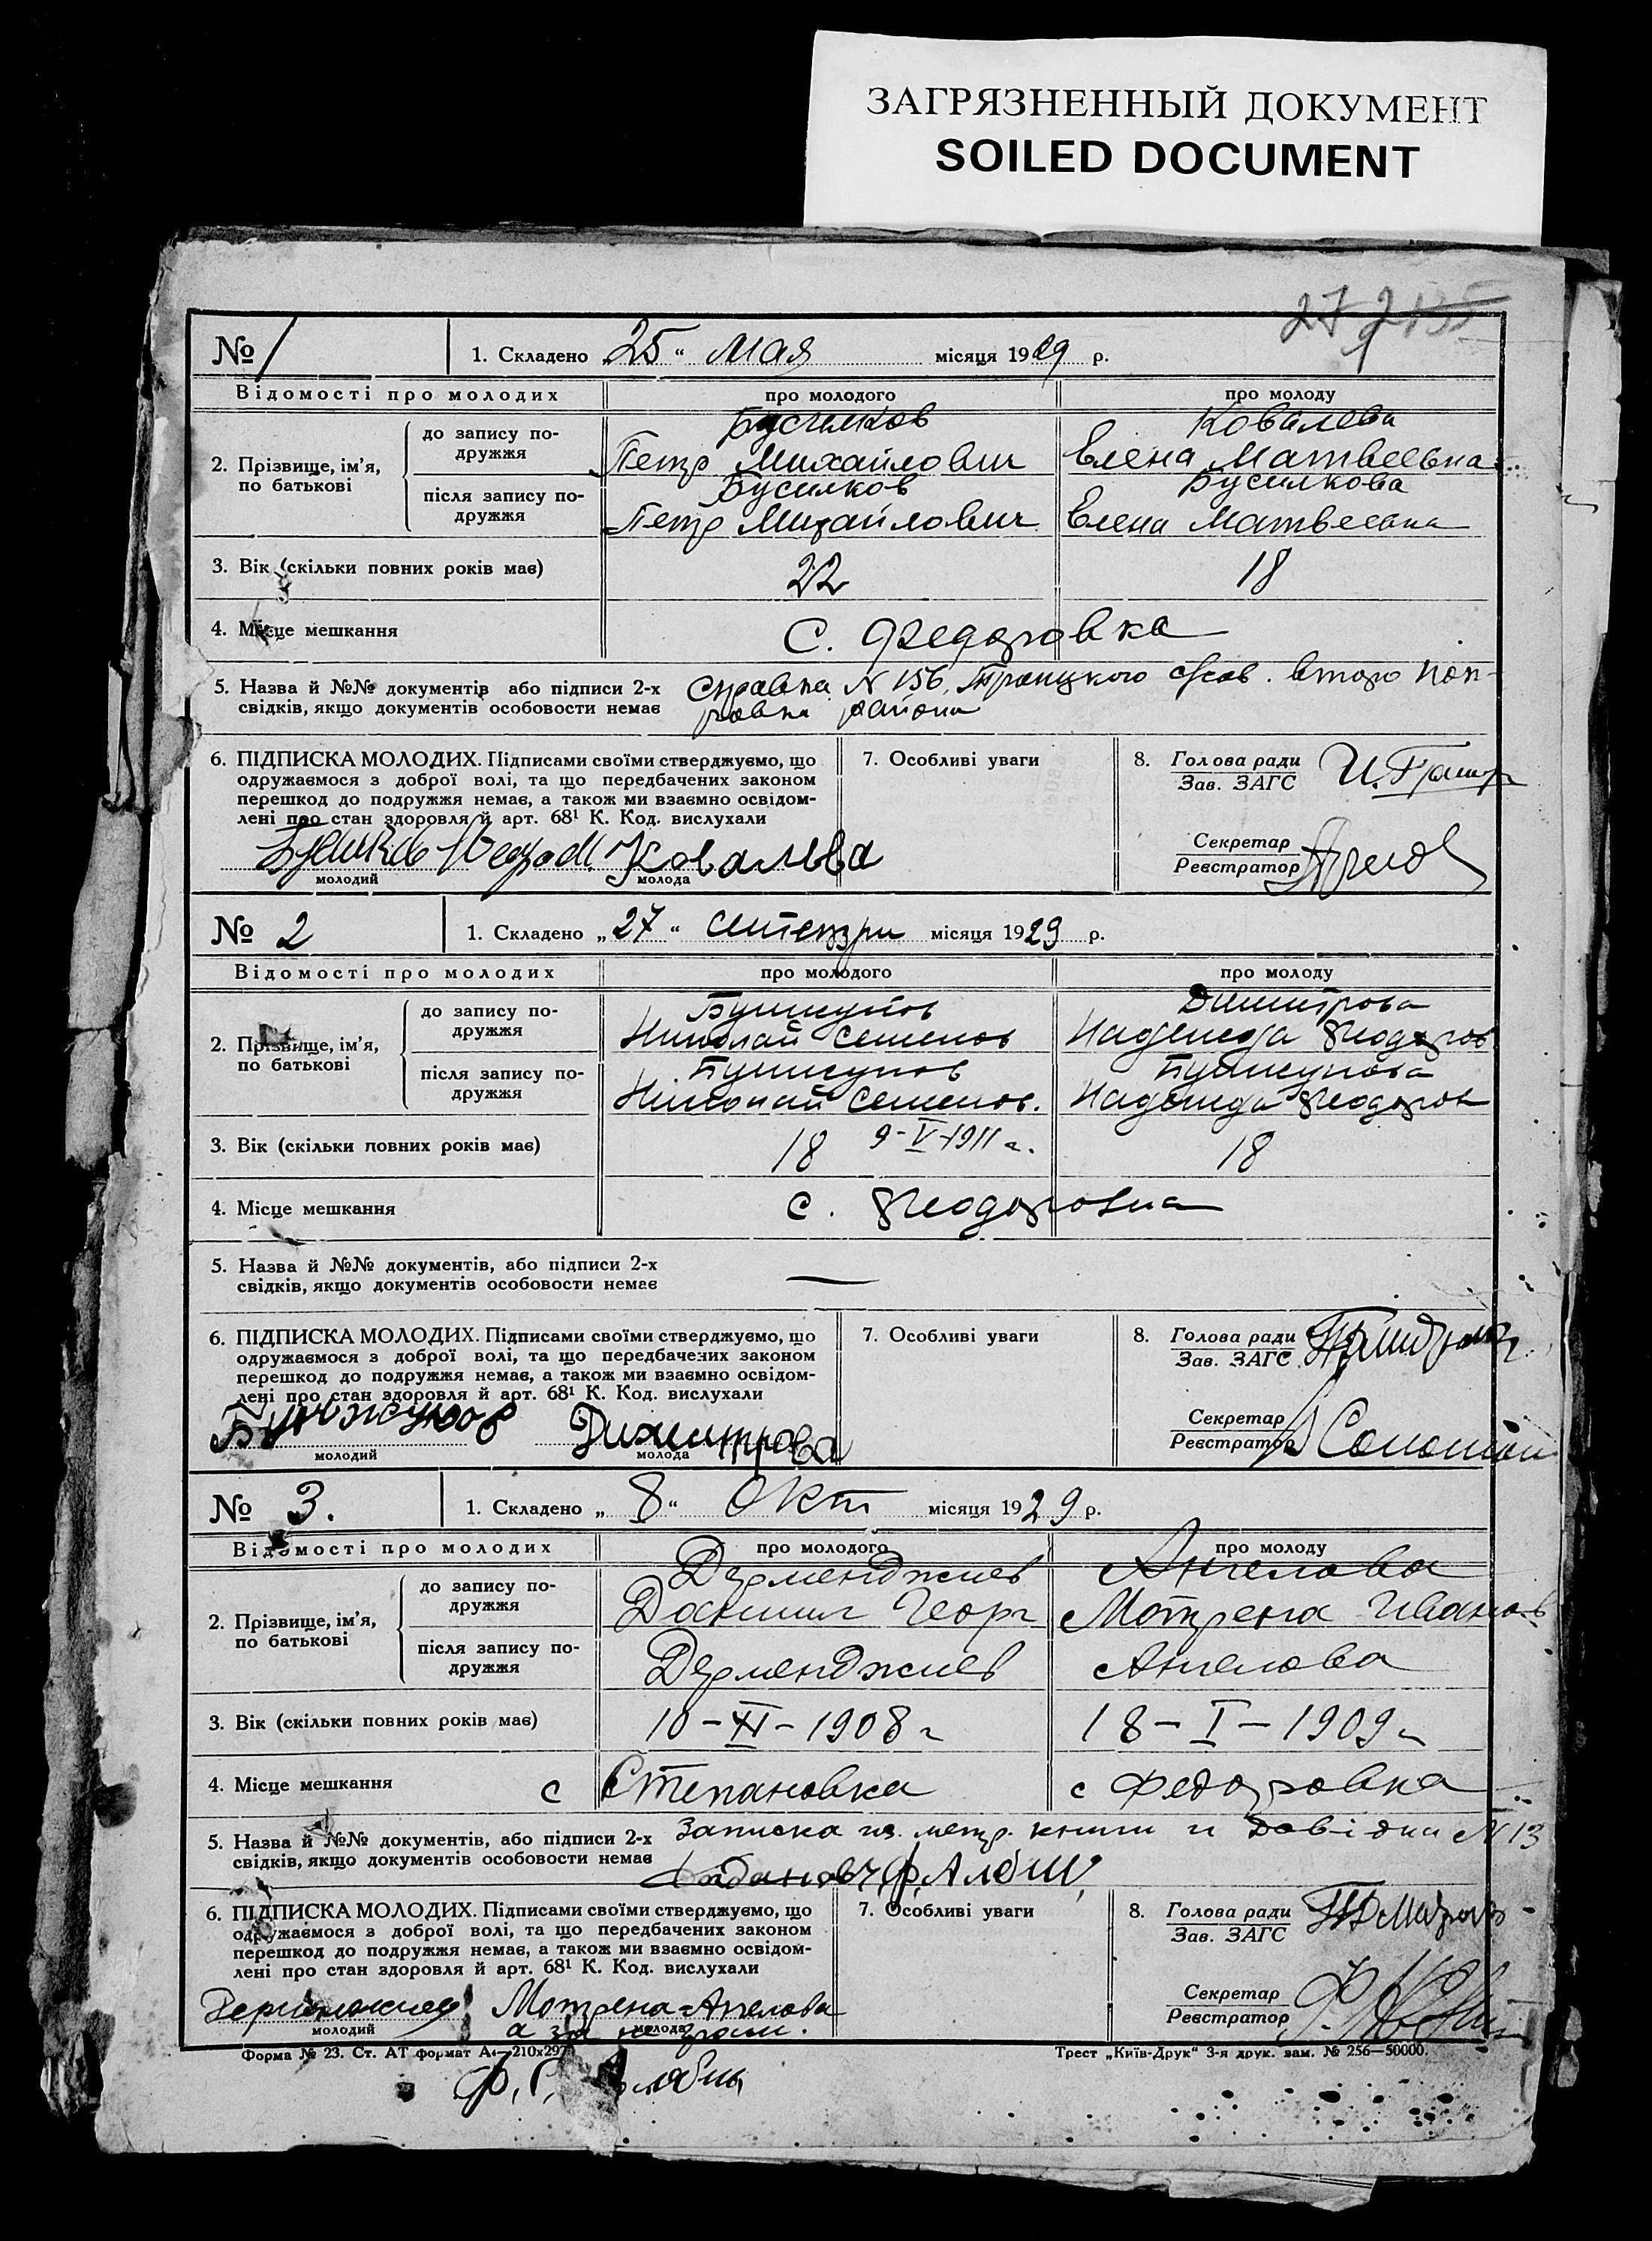 ЗАГРЯЗНЕННЫЙ ДОКУМЕНТ
SOILED DOCUMENT
№ 1
1. Складено 25 " мая місяця 1929 р.
Відомості про молодих
про молодого
про молоду
2. Прізвище, ім'я, по батькові
до запису подружжя
Бусилков
Петр Михайлович
Ковалева
Елена Матвеевна
після запису подружжя
Бусилков
Петр Михайлович
Бусилкова
Елена Матвеевна
3. Вік (скільки повних років має)
22
18
4. Місце мешкання
с. Федоровка
5. Назва й №№ документів або підписи 2-х
свідків, якщо документів особовости немає
Справка N 156, Троицкого
района
6. ПІДПИСКА МОЛОДИХ. Підписами своїми стверджуємо, що
одружаємося з доброї волі, та що передбачених законом
перешкод до подружжя немає, а також ми взаємно освідом-
лені про стан здоровля й арт. 68¹ К. Код. вислухали
Ковальва
молодий
молода
7. Особливі уваги
8. Голова ради
Зав. ЗАГС
Секретар
Реєстратор
№ 2
1. Складено „ 27 " місяця 1929 р.
Відомості про молодих
про молодого
про молоду
2. Прізвище, ім'я, по батькові
до запису подружжя
Николай Семенов
Димитрова
Надежда Феодоров
після запису подружжя
Николай Семенов.
Надежда Феодоров
3. Вік (скільки повних років має)
18 9-V-1911 г.
18
4. Місце мешкання
с. Феодоровка
5. Назва й №№ документів, або підписи 2-х
свідків, якщо документів особовости немає
—
6. ПІДПИСКА МОЛОДИХ. Підписами своїми стверджуємо, що
одружаємося з доброї волі, та що передбачених законом
перешкод до подружжя немає, а також ми взаємно освідом-
лені про стан здоровля й арт. 68¹ К. Код. вислухали
Димитрова
молодий
молода
7. Особливі уваги
8. Голова ради
Зав. ЗАГС
Секретар
Реєстратор
№ 3.
1. Складено „ 8 " Окт місяця 1929 р.
Відомості про молодих
про молодого
про молоду
2. Прізвище, ім'я, по батькові
до запису подружжя
Дерменджиев
Даниил Георг
Ангелова
Мотрена Иванов
після запису подружжя
Дерменджиев
Ангелова
3. Вік (скільки повних років має)
10-XI-1908 г
18-I-1909 г
4. Місце мешкання
с Степановка
с Федоровка
5. Назва й №№ документів, або підписи 2-х
свідків, якщо документів особовости немає
Записка из метр. книги и довідки N 13
6. ПІДПИСКА МОЛОДИХ. Підписами своїми стверджуємо, що
одружаємося з доброї волі, та що передбачених законом
перешкод до подружжя немає, а також ми взаємно освідом-
лені про стан здоровля й арт. 68¹ К. Код. вислухали
Мотрена Ангелова
молодий
молода
7. Особливі уваги
8. Голова ради
Зав. ЗАГС
Секретар
Реєстратор
Форма № 23. Ст. АТ формат А4—210х297
Трест „Київ-Друк" 3-я друк. зам. № 256—50000.